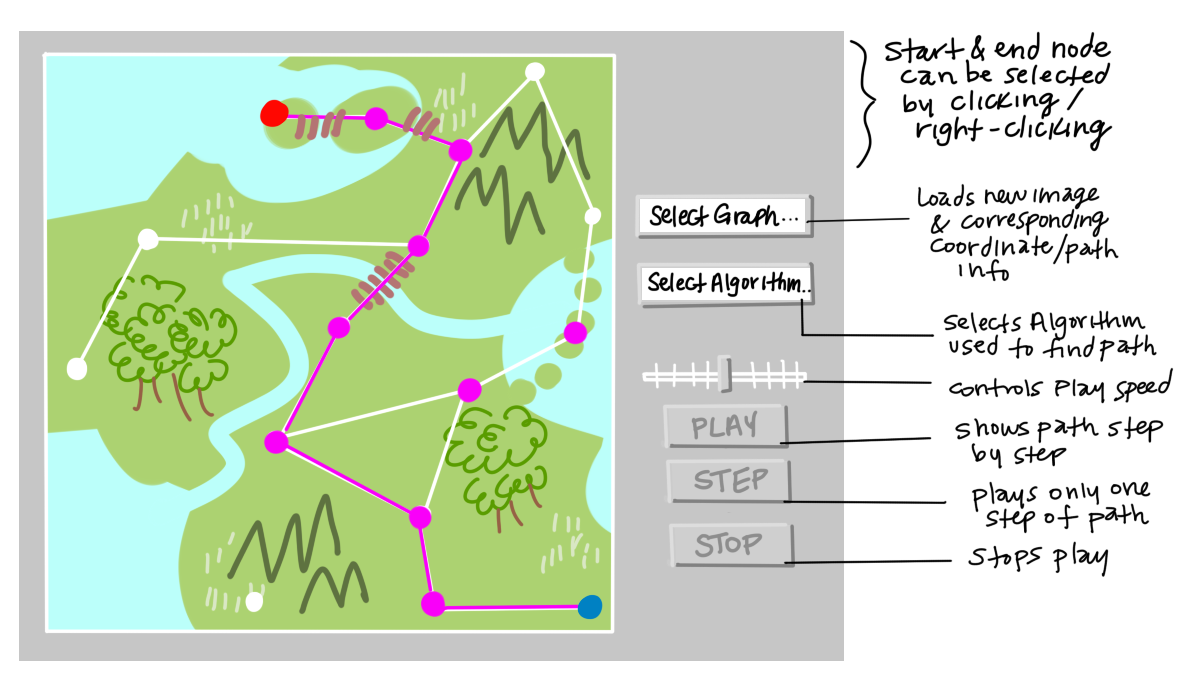 Start & end node
can be selected
by clicking/
right-clicking
Select Graph...
Loads new image
& corresponding
coordinate/path
info
Select Algorithm..
Selects Algorithm
used to find path
controls Play speed
PLAY
shows path step
by step
STEP
plays only one
step of path
STOP
stops play